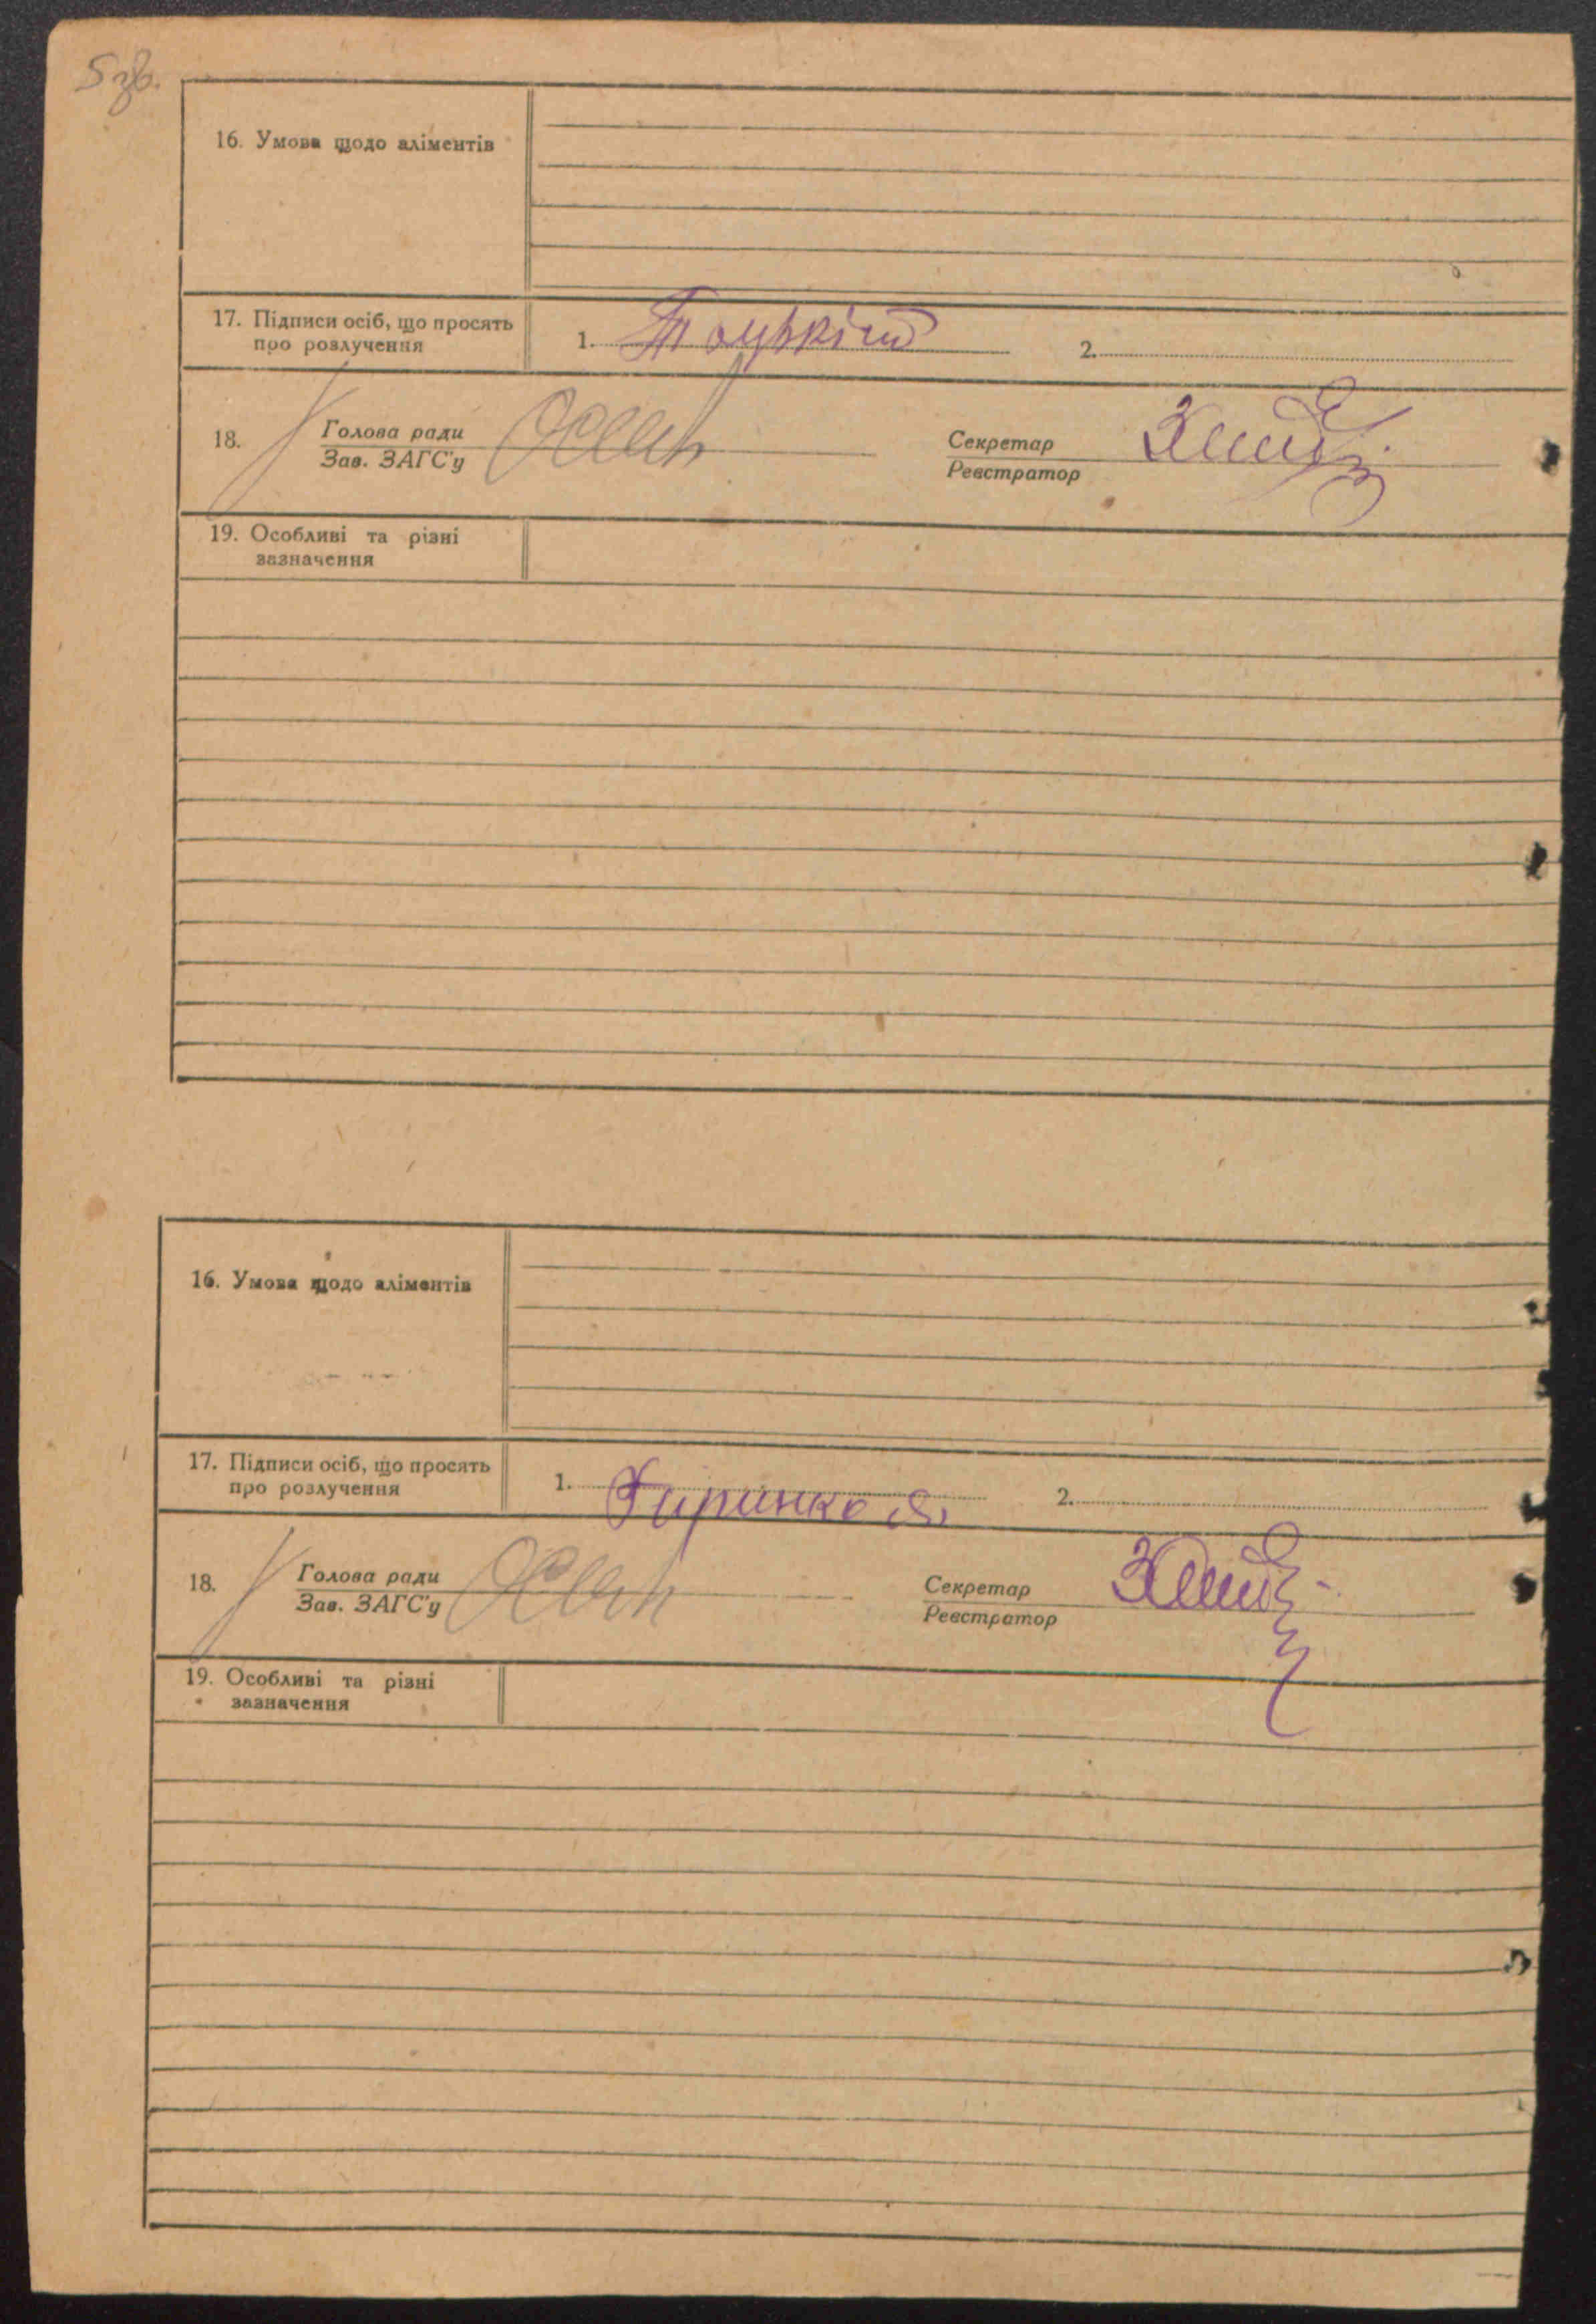 5 зв.
16. Умова щодо аліментів
17. Підписи осіб, що просять
про розлучення
1.
2.
18.
Голова ради
Зав. ЗАГС'у
Секретар
Реєстратор
19. Особливі та різні
зазначення
16. Умова щодо аліментів
17. Підписи осіб, що просять
про розлучення
1.
2.
18.
Голова ради
Зав. ЗАГС'у
Секретар
Реєстратор
19. Особливі та різні
зазначення